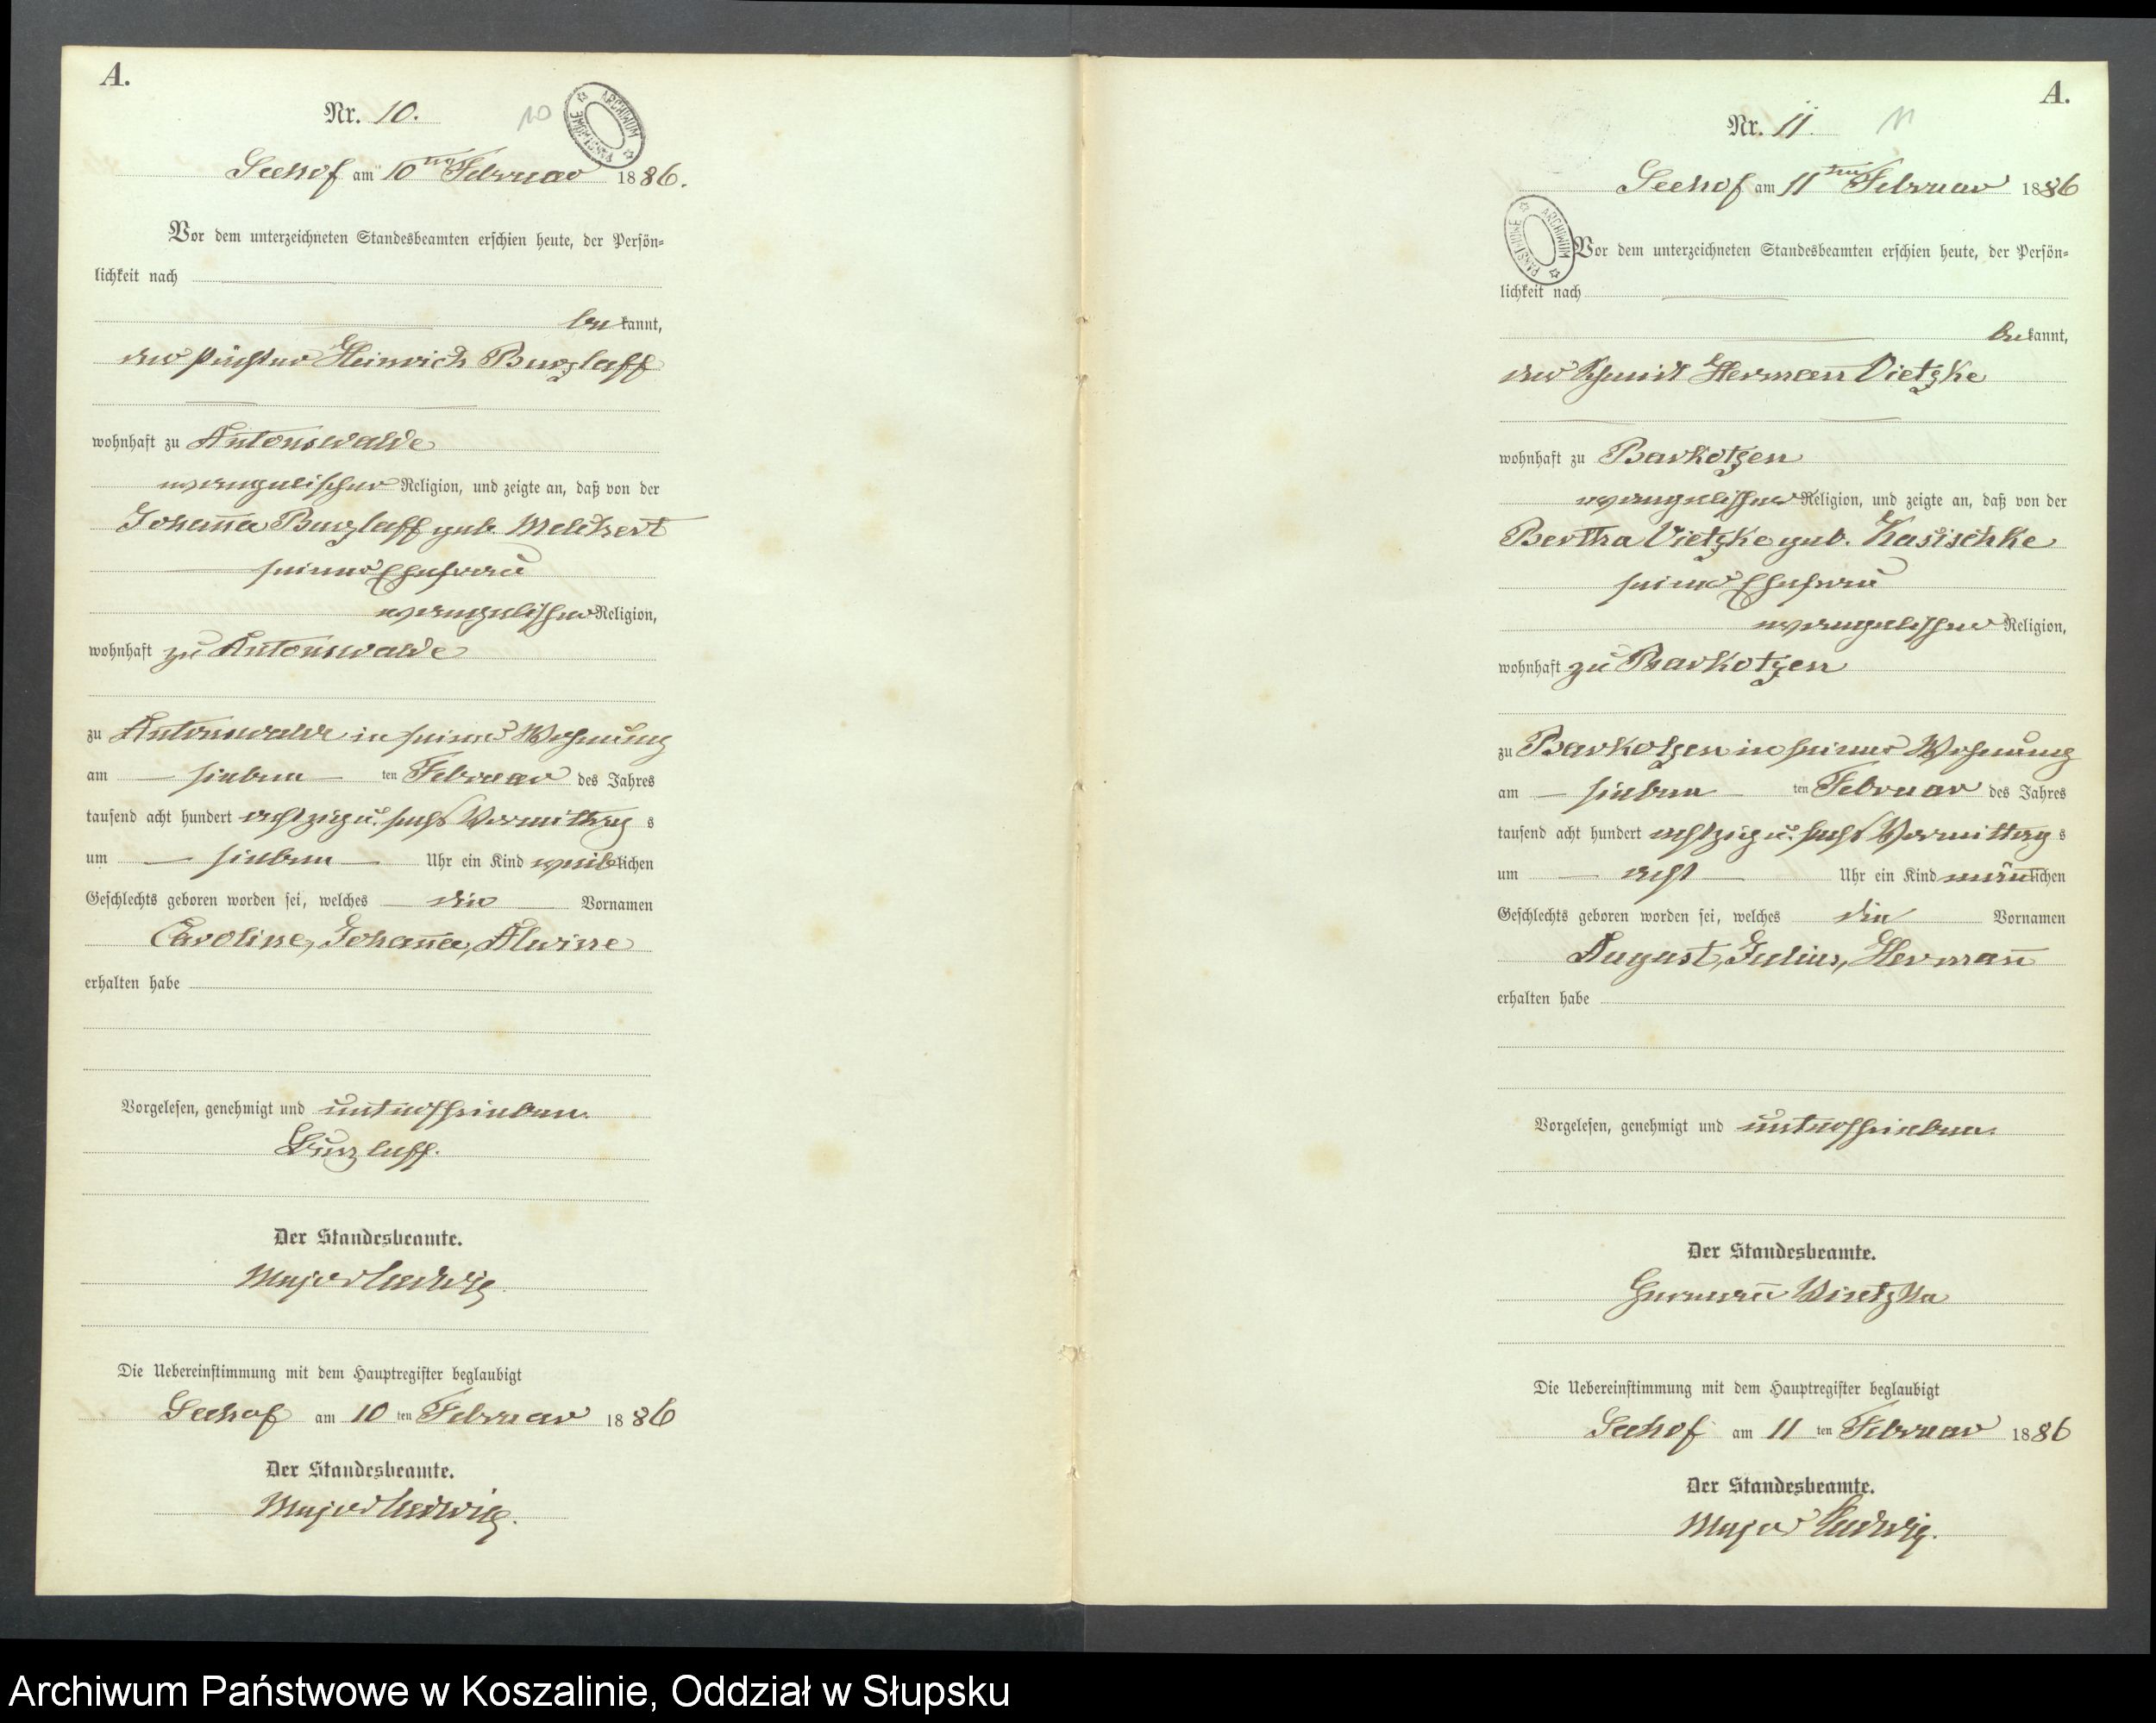 A.
Nr. 10.
10
ARCHIWUM PAŃSTWOWE
Seehof am 10ten Februar 1886.
Vor dem unterzeichneten Standesbeamten erschien heute, der Persön-
lichkeit nach
bekannt,
der Pächter Heinrich Burzlaff
wohnhaft zu Antonswalde
evangelischer Religion, und zeigte an, daß von der
Johanna Burzlaff geb. Melchert
seiner Ehefrau
evangelischer Religion,
wohnhaft zu Antonswalde
zu Antonswalde in seiner Wohnung
am sieben ten Februar des Jahres
tausend acht hundert achtzig u. sechs Vormittags
um sieben Uhr ein Kind weiblichen
Geschlechts geboren worden sei, welches die Vornamen
Caroline, Johanna, Alwine
erhalten habe
Vorgelesen, genehmigt und unterschrieben.
Burzlaff.
Der Standesbeamte.
Major Ludwig
Die Uebereinstimmung mit dem Hauptregister beglaubigt
Seehof am 10 ten Februar 1886
Der Standesbeamte.
Major Ludwig.
A.
Nr. 11.
11
Seehof am 11ten Februar 1886
ARCHIWUM PAŃSTWOWE
Vor dem unterzeichneten Standesbeamten erschien heute, der Persön-
lichkeit nach
bekannt,
der Schmidt Hermann Vietzke
wohnhaft zu Barkotzen
evangelischer Religion, und zeigte an, daß von der
Bertha Vietzke geb. Kasischke
seiner Ehefrau
evangelischer Religion,
wohnhaft zu Barkotzen
zu Barkotzen in seiner Wohnung
am sieben ten Februar des Jahres
tausend acht hundert achtzig u. sechs Vormittags
um acht Uhr ein Kind männlichen
Geschlechts geboren worden sei, welches die Vornamen
August, Julius, Hermann
erhalten habe
Vorgelesen, genehmigt und unterschrieben.
Der Standesbeamte.
Hermann Vietzke
Die Uebereinstimmung mit dem Hauptregister beglaubigt
Seehof am 11 ten Februar 1886
Der Standesbeamte.
Major Ludwig.
Archiwum Państwowe w Koszalinie, Oddział w Słupsku